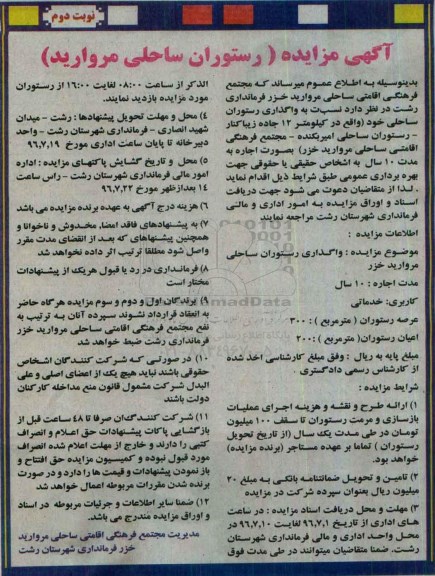 نوبت دوم
آگهی مزایده ( رستوران ساحلی مروارید)
بدینوسیله به اطلاع عموم میرساند که مجتمع
فرهنگی اقامتی ساحلی مروارید خزر فرمانداری
رشت در نظر دارد نسبت به واگذاری رستوران
ساحلی خود (واقع در کیلومتر ۱۲ جاده زیباکنار
- رستوران ساحلی امیربکنده - مجتمع فرهنگی
اقامتی ساحلی مروارید خزر) بصورت اجاره به
مدت ۱۰ سال به اشخاص حقیقی یا حقوقی جهت
بهره برداری عمومی طبق شرایط ذیل اقدام نماید
. لذا از متقاضیان دعوت می شود جهت دریافت
اسناد و اوراق مزایده به امور اداری و مالی
فرمانداری شهرستان رشت مراجعه نمایند
اطلاعات مزایده :
موضوع مزایده : واگذاری رستوران ساحلی
مروارید خزر
مدت اجاره : ۱۰ سال
کاربری: خدماتی
عرصه رستوران ( مترمربع ) : ۳۰۰
اعیان رستوران( مترمربع ) : ۲۰۰
مبلغ پایه به ریال : وفق مبلغ کارشناسی اخذ شده
از کارشناس رسمی دادگستری .
شرایط مزایده :
۱) ارائه طرح و نقشه و هزینه اجرای عملیات
بازسازی و مرمت رستوران تا سقف ۱۰۰ میلیون
تومان در طی مدت یک سال (از تاریخ تحویل
رستوران ) تماما بر عهده مستاجر (برنده مزایده)
خواهد بود.
۲) تامین و تحویل ضمانتنامه بانکی به مبلغ ۲۰
میلیون ریال بعنوان سپرده شرکت در مزایده
۳) مهلت و محل دریافت اسناد مزایده : در ساعت
های اداری از تاریخ ۹۶,۷,۱ لغایت ۹۶,۷,۱۰ در
محل واحد اداری و مالی فرمانداری شهرستان
رشت. ضمنا متقاضیان میتوانند در طی مدت فوق
الذکر از ساعت ۰۸:۰۰ لغایت ۱۶:۰۰ از رستوران
مورد مزایده بازدید نمایند.
۴) محل و مهلت تحویل پیشنهادها : رشت - میدان
شهید انصاری - فرمانداری شهرستان رشت - واحد
دبیرخانه تا پایان ساعت اداری مورخ ۹۶,۷,۱۹
۵) محل و تاریخ گشایش پاکتهای مزایده : اداره
امور مالی فرمانداری شهرستان رشت - راس ساعت
۱۴ بعدازظهر مورخ ۹۶,۷,۲۲
۶) هزینه درج آگهی به عهده برنده مزایده می باشد
۷) به پیشنهادهای فاقد امضا, مخدوش و ناخوانا و
همچنین پیشنهادهای که بعد از انقضای مدت مقرر
واصل شود مطلقا ترتیب اثر داده نخواهد شد
۸) فرمانداری در رد یا قبول هریک از پیشنهادات
مختار است
۹) برندگان اول و دوم و سوم مزایده هرگاه حاضر
به انعقاد قرارداد نشوند سپرده آنان به ترتیب به
نفع مجتمع فرهنگی اقامتی ساحلی مروارید خزر
فرمانداری رشت ضبط خواهد شد
۱۰) در صورتی که شرکت کنندگان اشخاص
حقوقی باشند نباید هیچ یک از اعضای اصلی و علی
البدل شرکت مشمول قانون منع مداخله کارکنان
دولت باشند
۱۱) شرکت کنندگان صرفا تا ۴۸ ساعت قبل از
بازگشایی پاکات پیشنهادات حق اعلام و انصراف
کتبی را دارند و خارج از مهلت اعلام شده انصراف
مورد قبول نبوده و کمیسیون مزایده حق افتتاح و
باز نمودن پیشنهادات و قیمت ها را دارد و در صورت
برنده شدن مقررات مربوطه اعمال خواهد شد
۱۲) ضمنا سایر اطلاعات و جزئیات مربوطه در اسناد
و اوراق مزایده مندرج می باشد.
مدیریت مجتمع فرهنگی اقامتی ساحلی مروارید
خزر فرمانداری شهرستان رشت